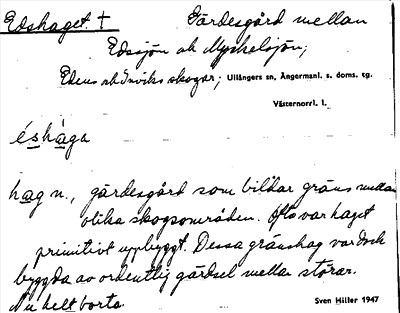 Edshaget. † Gärdesgård mellan
Edssjön ok Myckelsjön;
Edens ok Inviks skogar; Ullångers sn, Ångermanl. s. doms. tg.
Västernorrl. l.
éshàga
hag n., gärdesgård som bildar gräns mellan
olika skogsområden. Ofta var haget
primitivt uppbyggt. Dessa gränshag var dock
byggda av ordentlig gärdsel mellan störar.
Nu helt borta.
Sven Hiller 1947